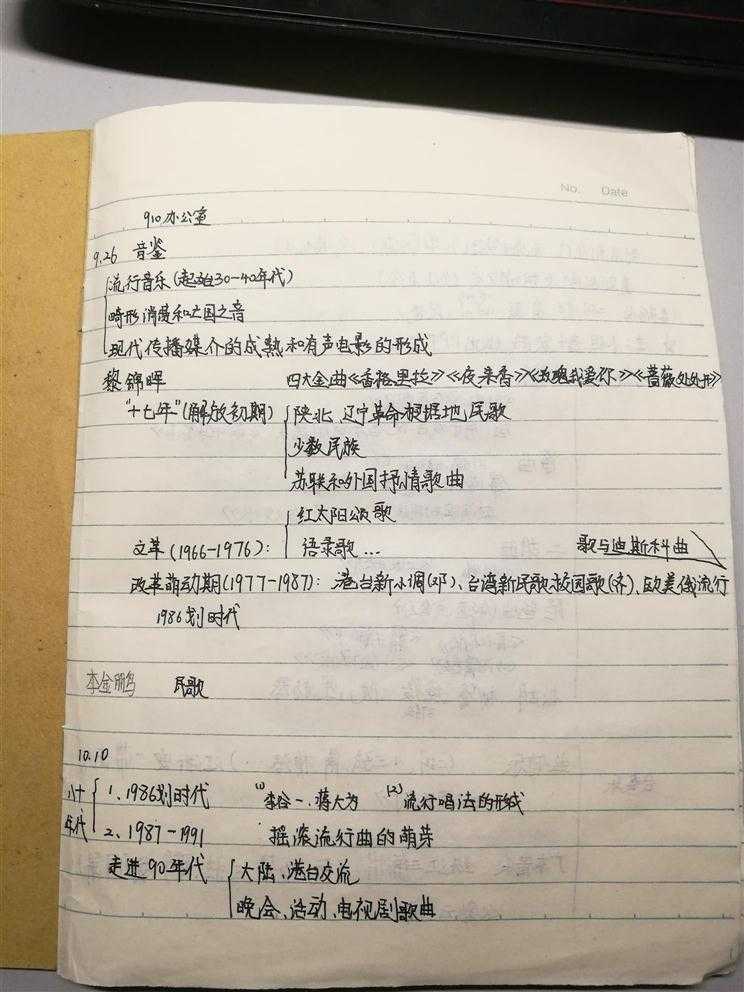 No. Date
910办公室
9.26 音鉴
流行音乐(起始30-40年代)
畸形消费和亡国之音
现代传播媒介的成熟和有声电影的形成
黎锦晖 四大金曲《香格里拉》《夜来香》《玫瑰我爱你》《蔷薇处处开》
"十七年"(解放初期) 陕北、辽宁革命根据地民歌
少数民族
苏联和外国抒情歌曲
红太阳颂歌
文革(1966-1976): 语录歌... 歌与迪斯科曲
改革萌动期(1977-1987): 港台新小调(邓)、台湾新民歌校园歌(齐)、欧美俄流行
1986划时代
李金鹏 民歌
10.10
八十年代 1、1986划时代 (1)李谷一、蒋大为 (2)流行唱法的形成
2、1987-1991 摇滚流行曲的萌芽
走进90年代 大陆、港台交流
晚会、活动、电视剧歌曲